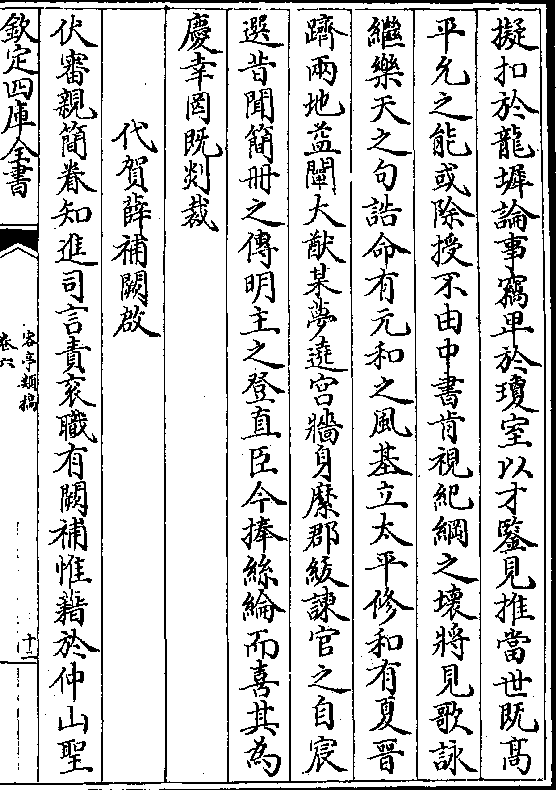 擬扣於龍墀論事竊卑於瓊室以才鑒見推當世既髙
平允之能或除授不由中書肯視紀綱之壞將見歌詠
繼樂天之句誥命有元和之風基立太平修和有夏晉
躋兩地益闡大猷某夢遶宫牆身縻郡綬諌官之自宸
選昔聞簡册之傳明主之登直臣今捧絲綸而喜其為
慶幸罔既剡裁
代賀薛補闕啟
伏審親簡眷知進司言責衮職有闕補惟藉於仲山聖
欽定四庫全書
客亭類稿
卷六
十二